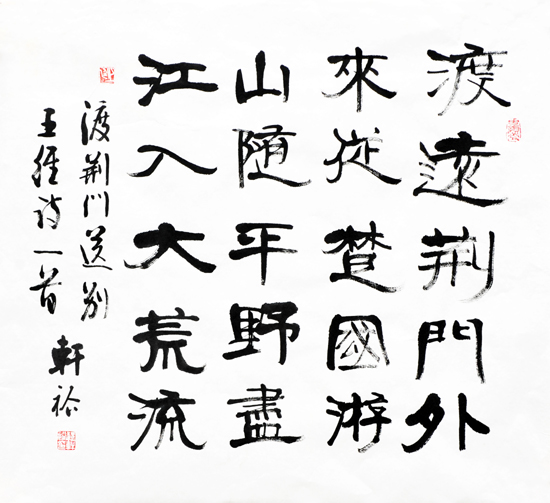 渡遠荆門外
來從楚國游
山隨平野盡
江入大荒流
渡荆门送别
王維诗一首 軒裕